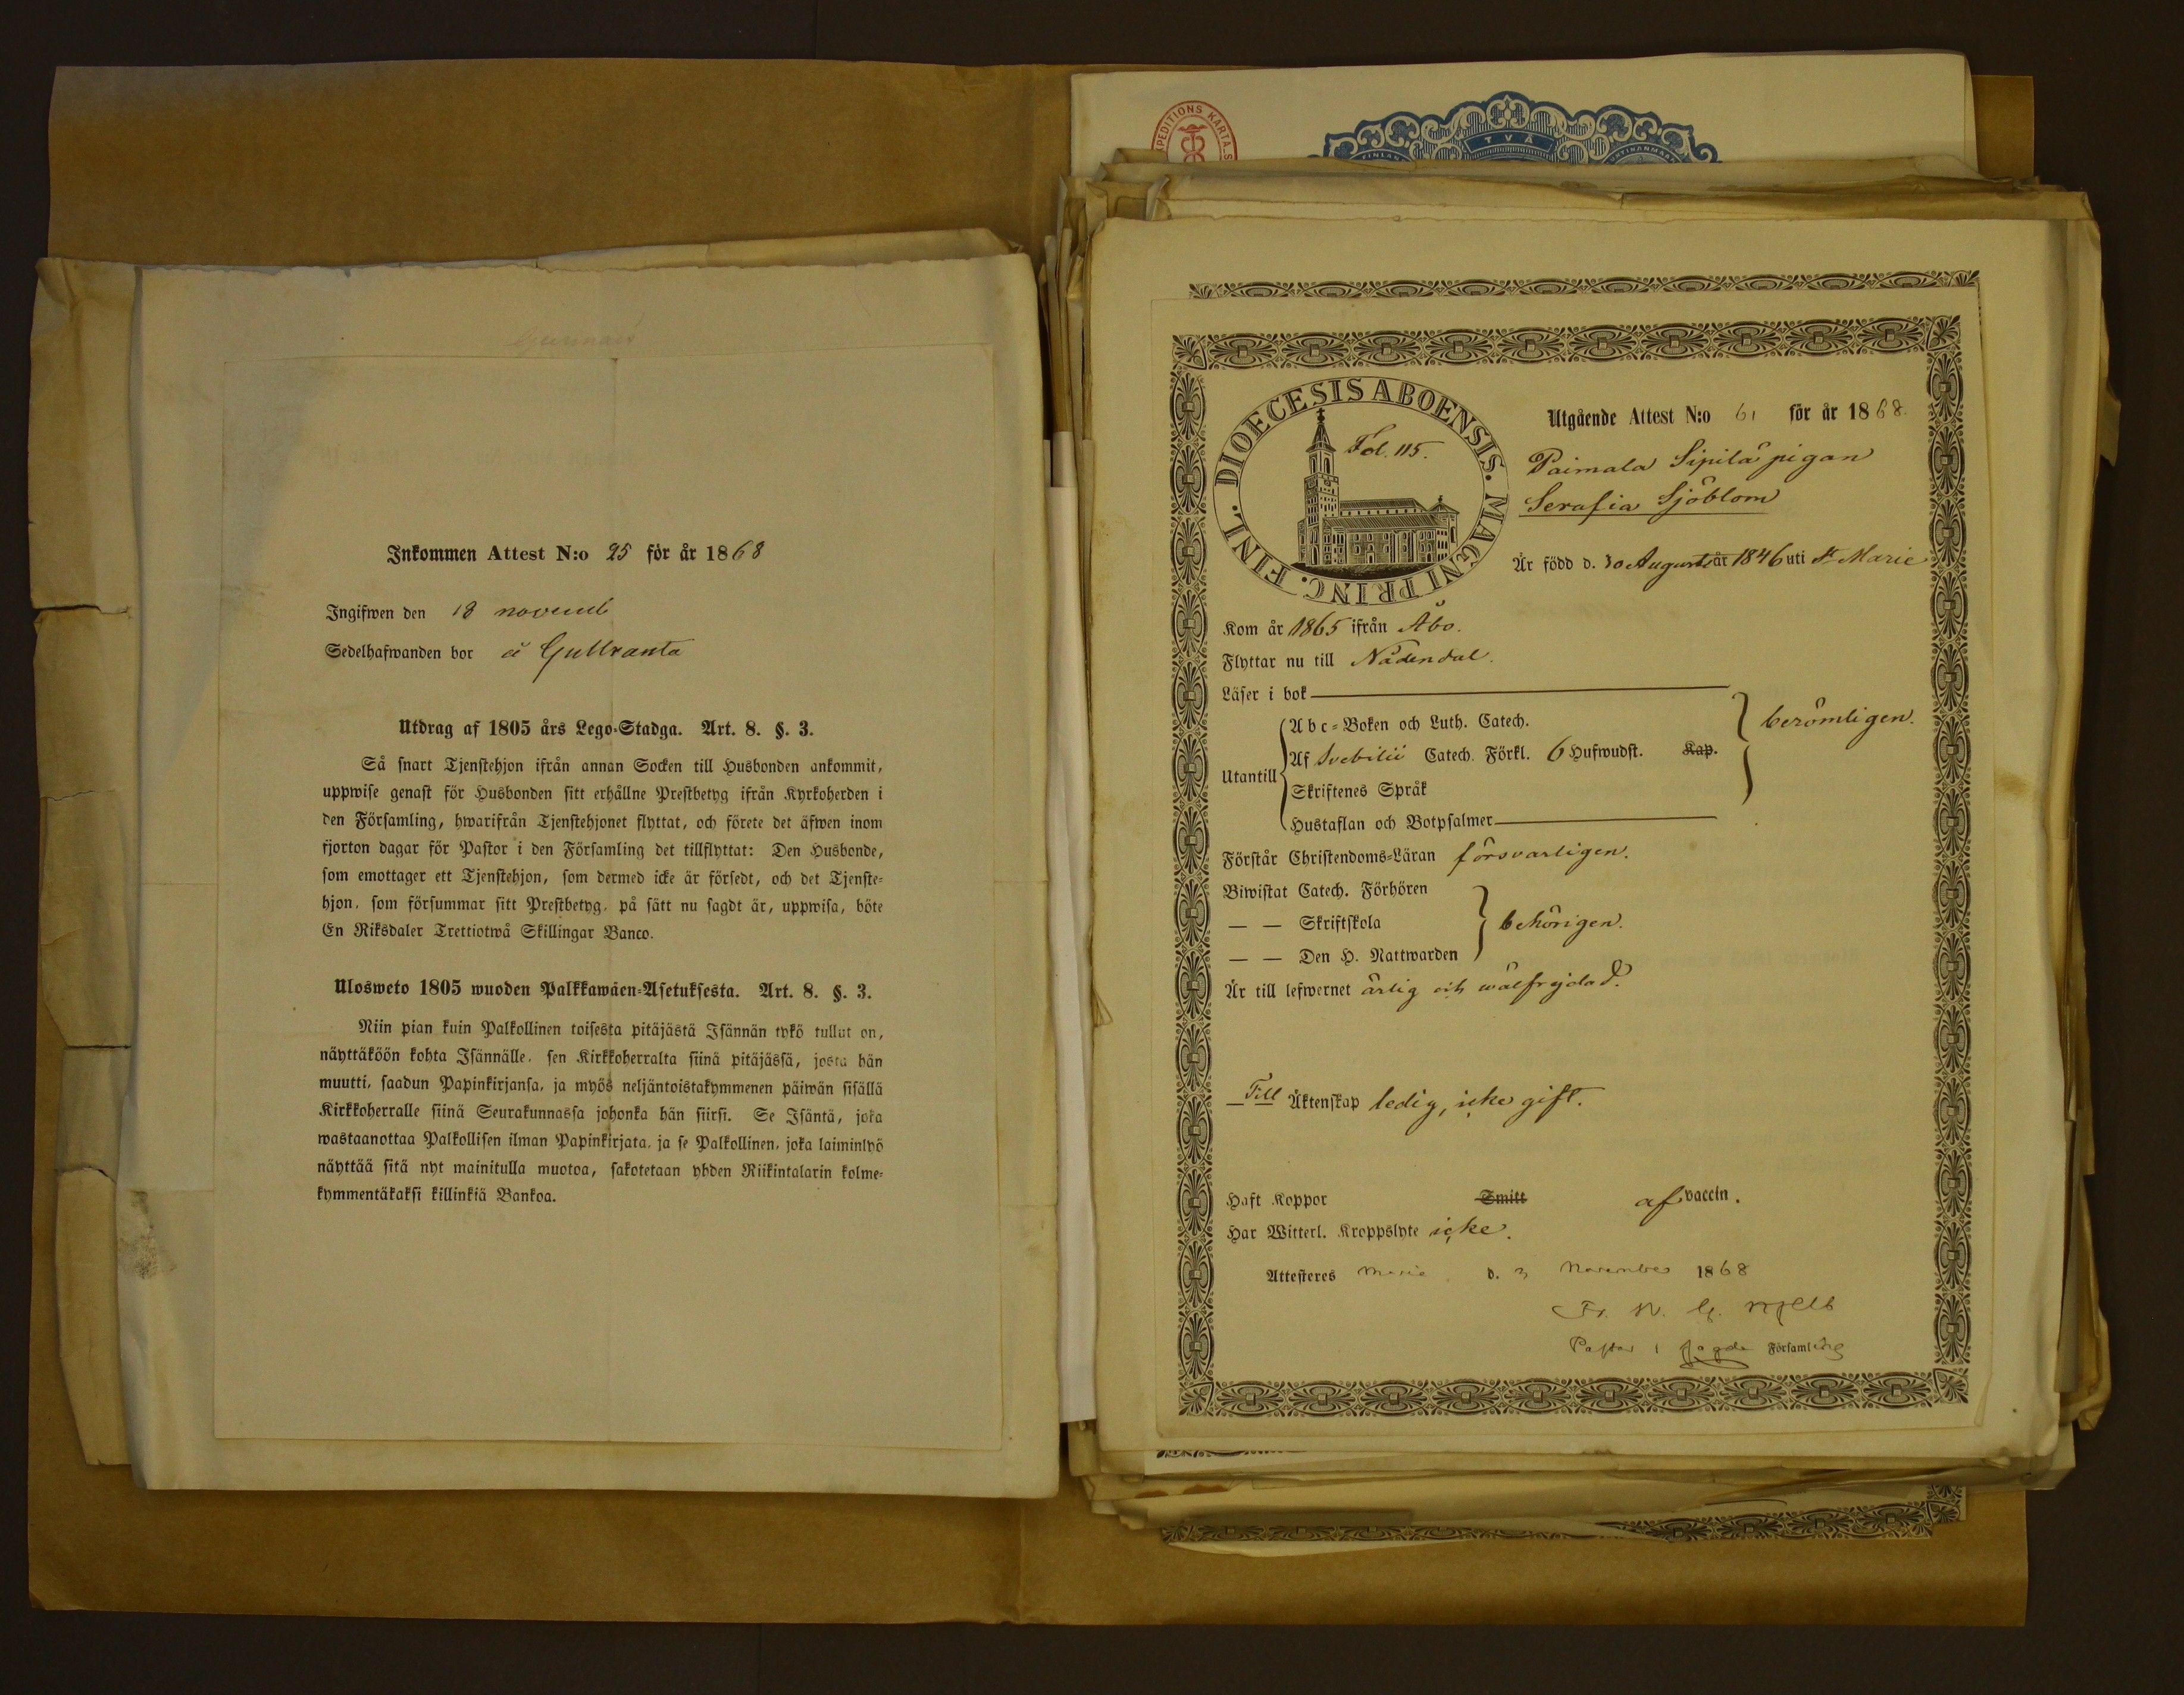 Inkommen Attest N:o 25 för år 1868
Ingifwen den 18 novemb
Sedelhafwanden bor å Gullranta
Utdrag af 1805 års Lego-Stadga. Art. 8. §. 3.
Så snart Tjenstehjon ifrån annan Socken till Husbonden ankommit,
uppwise genast för Husbonden sitt erhållne Prestbetyg ifrån Kyrkoherden i
den Församling, hwarifrån Tjenstehjonet flyttat, och förete det äfwen inom
fjorton dagar för Pastor i den Församling det tillflyttat: Den Husbonde,
som emottager ett Tjenstehjon, som dermed icke är försedt, och det Tjenste-
hjon, som försummar sitt Prestbetyg, på sätt nu sagdt är, uppwisa, böte
En Riksdaler Trettiotwå Skillingar Banco.
Ulosweto 1805 wuoden Palkkawäen-Asetuksesta. Art. 8. §. 3.
Niin pian kuin Palkollinen toisesta pitäjästä Isännän tykö tullut on,
näyttäköön kohta Isännälle, sen Kirkkoherralta siinä pitäjässä, josta hän
muutti, saadun Papinkirjansa, ja myös neljäntoistakymmenen päiwän sisällä
Kirkkoherralle siinä Seurakunnassa johonka hän siirsi. Se Isäntä, joka
wastaanottaa Palkollisen ilman Papinkirjata, ja se Palkollinen, joka laiminlyö
näyttää sitä nyt mainitulla muotoa, sakotetaan yhden Riikintalarin kolme-
kymmentäkaksi killinkiä Bankoa.
TVÅ
DIOECESIS ABOENSIS. MAGNI PRINC. FINL.
Fol. 115.
Utgående Attest N:o 61 för år 1868
Paimala Sipilä pigan
Serafia Sjöblom
Är född d. 30 Augusti år 1846 uti St Marie
Kom år 1865 ifrån Åbo.
Flyttar nu till Nådendal.
Läser i bok
Utantill
Abc-Boken och Luth. Catech.
Af Svebilii Catech. Förkl. 6 Hufwudst. Kap.
Skriftenes Språk
Hustaflan och Botpsalmer
berömligen.
Förstår Christendoms-Läran försvarligen.
Biwistat Catech. Förhören
— — Skriftskola
— — Den H. Nattwarden
behörigen.
Är till lefwernet ärlig och wälfrejdad.
Till Äktenskap ledig, icke gift.
Haft Koppor Smitt af vaccin.
Har Witterl. Kroppslyte icke.
Attesteres Marie d. 3 November 1868
Fr. W. G.
Pastor i sagde Församling